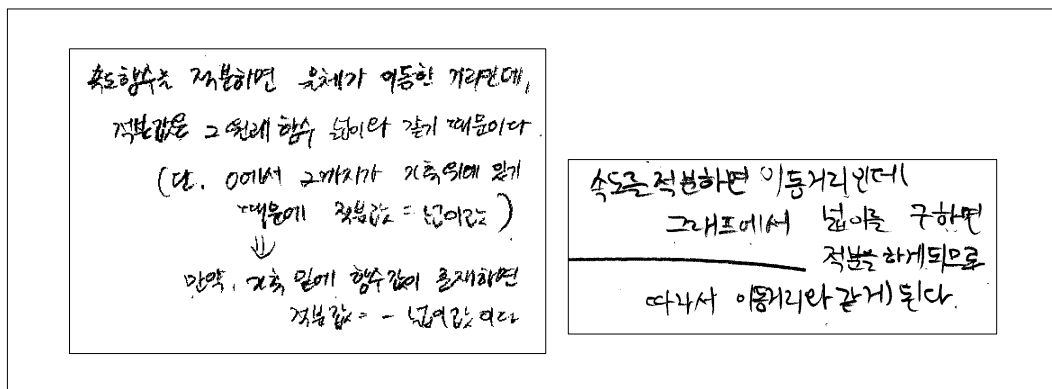 속도함수는 적분하면 물체가 이동한 거리인데,
적분값은 그 원래 함수 넓이와 같기 때문이다
(단, 0에서 2까지가 x축 위에 있기
때문에 적분값 = 넓이값)
⇓
만약, x축 밑에 함수값이 존재하면
적분값 = - 넓이값이다
속도를 적분하면 이동거리인데
그래프에서 넓이를 구하면
적분을 하게되므로
따라서 이동거리와 같게 된다.